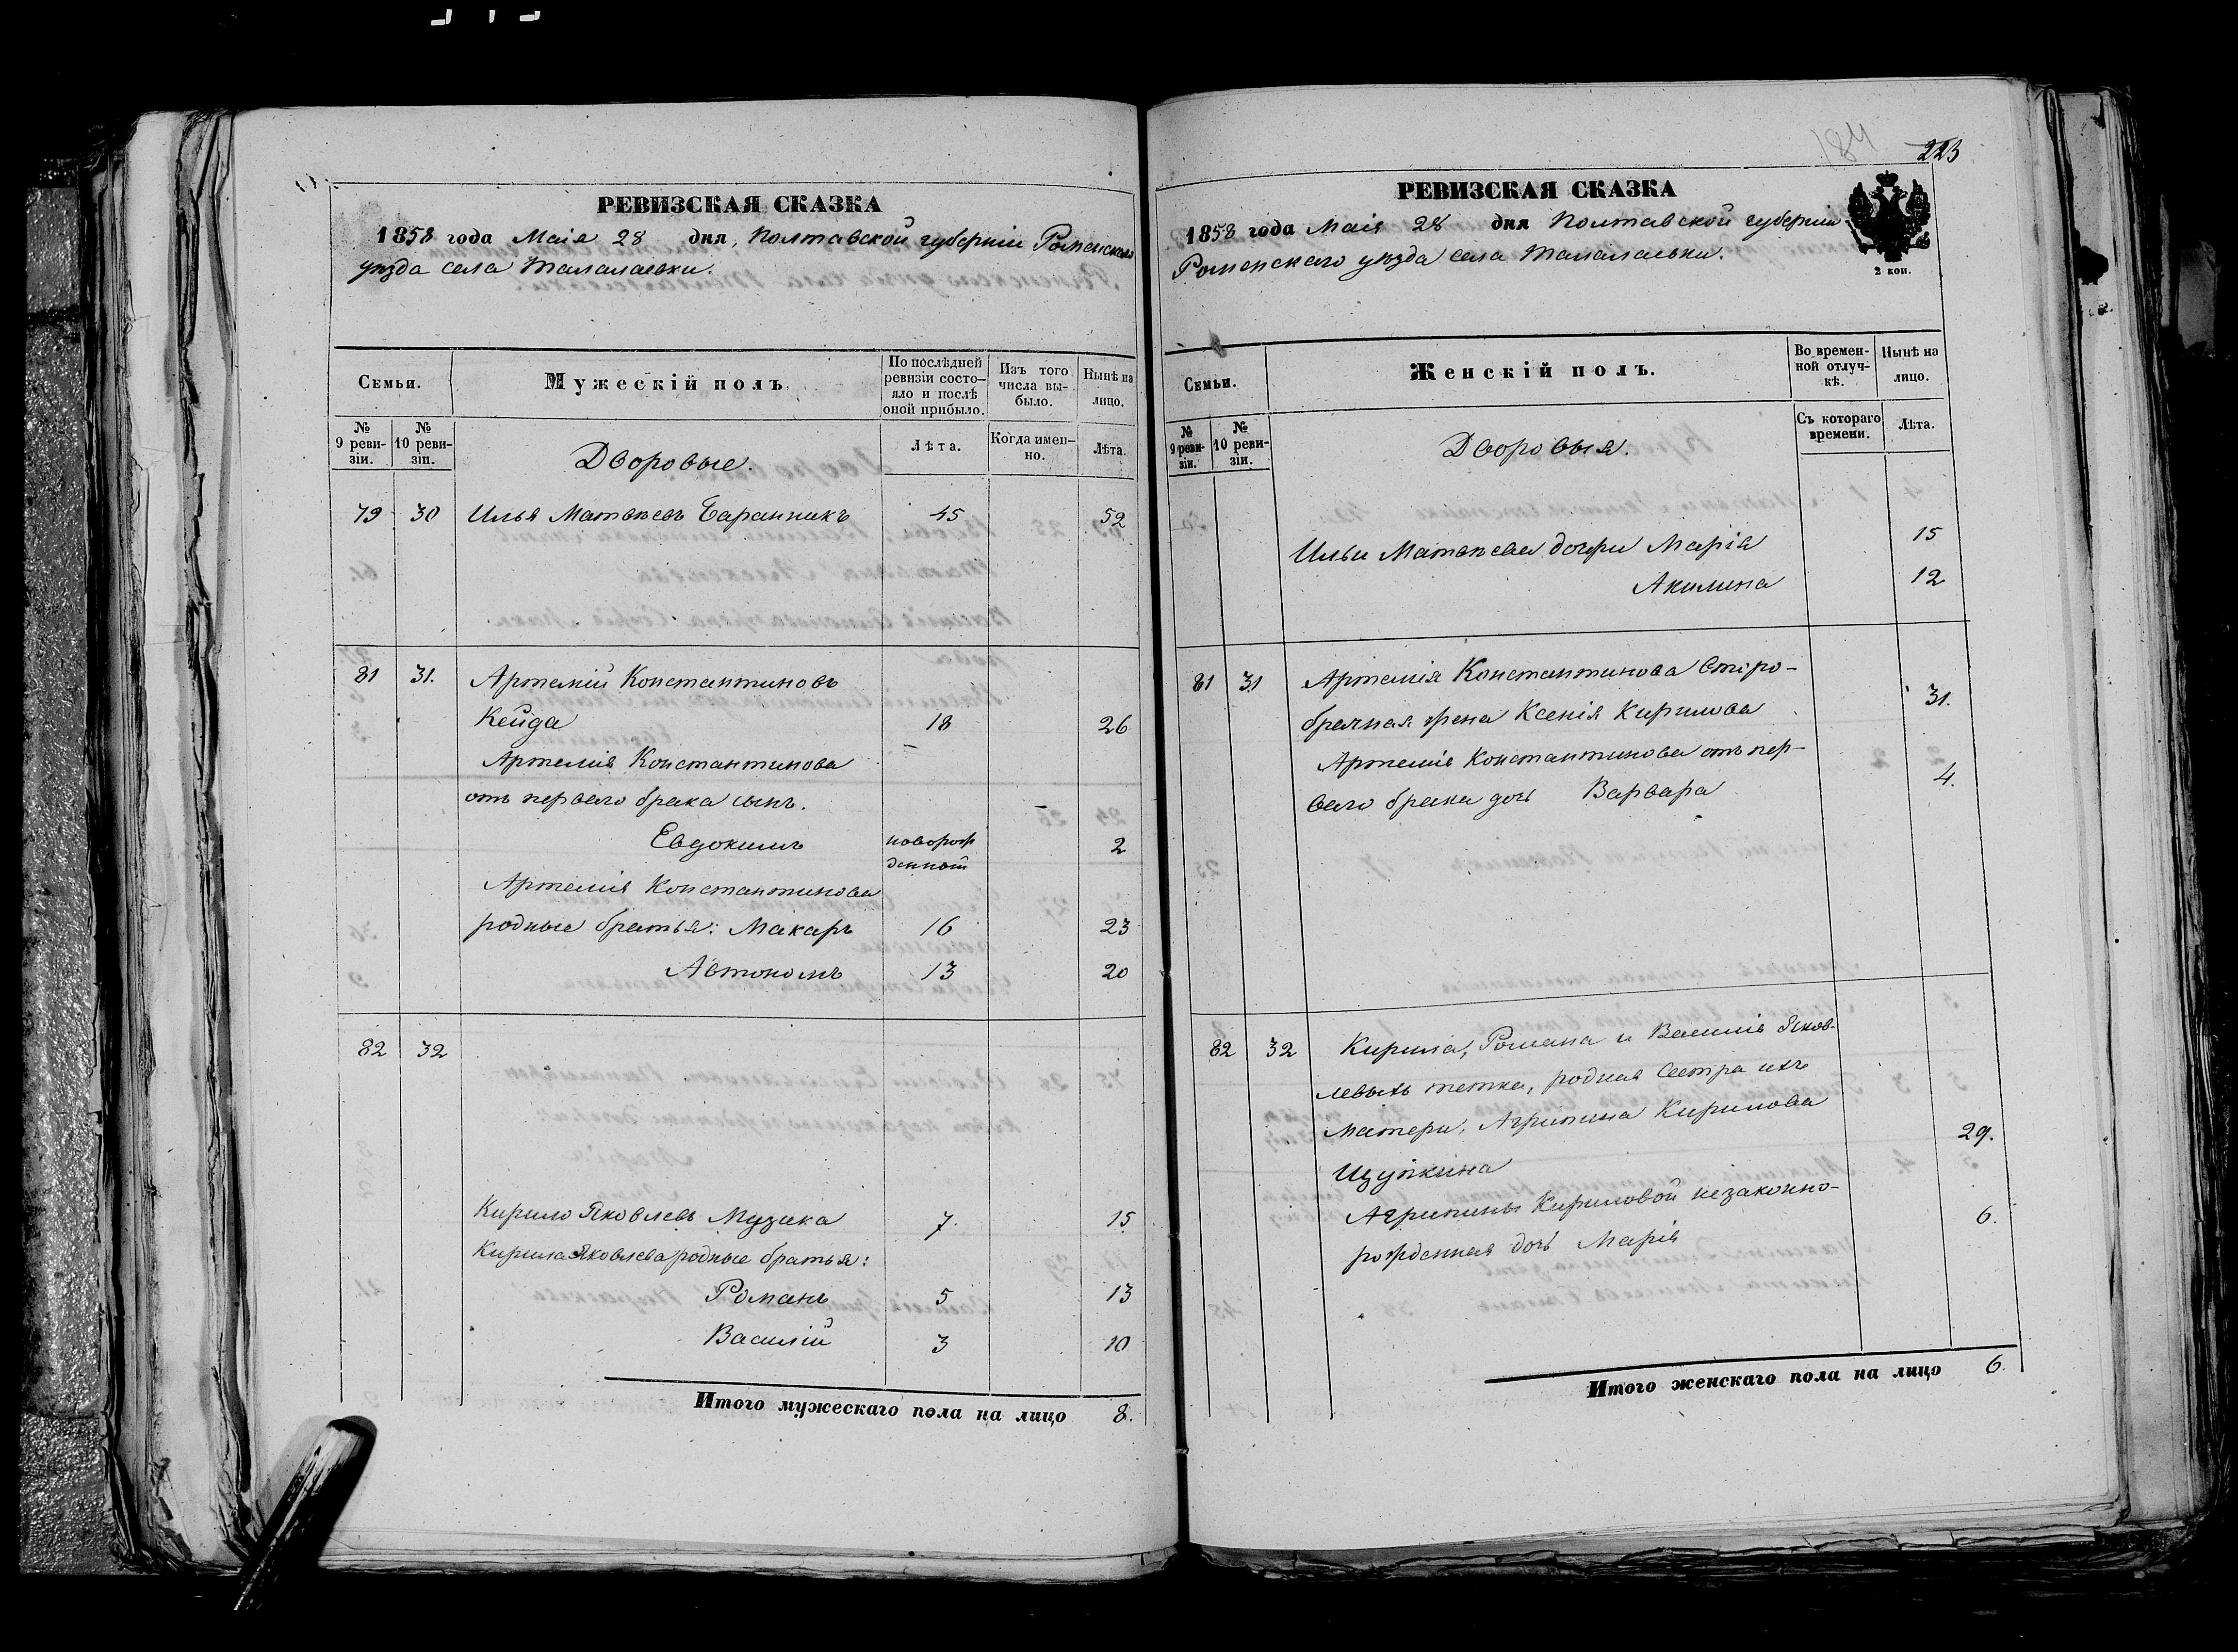 РЕВИЗСКАЯ СКАЗКА
1858 года Маія 28 дня, Полтавской губерніи Роменскаго
уѣзда села Талалаевки.
Семьи.
Мужескій полъ.
По послѣдней ревизіи состояло и послѣ оной прибыло.
Изъ того числа выбыло.
Нынѣ на лицо.
№ 9 ревизіи.
№ 10 ревизіи.
Лѣта.
Когда именно.
Лѣта.
Дворовые.
79 30 Илья Матвѣевъ Баранникъ 45 52
81 31. Артемій Константиновъ
Кейда 18 26
Артемія Константинова
отъ перваго брака сынъ.
Евдокимъ новорож 2
денный
Артемія Константинова
родные братья: Макаръ 16 23
Автономъ 13 20
82 32
Кирило Яковлевъ Музика 7. 15
Кирила Яковлева родные братья:
Романъ 5 13
Василій 3 10
Итого мужескаго пола на лицо 8.
184
223
РЕВИЗСКАЯ СКАЗКА
1858 года Маія 28 дня Полтавской губерніи
Роменскаго уѣзда села Талалаевки.
2 коп.
Семьи.
Женскій полъ.
Во временной отлучкѣ.
Нынѣ на лицо.
№ 9 ревизіи.
№ 10 ревизіи.
Съ котораго времени.
Лѣта.
Дворовыя.
Ильи Матвѣева дочери Марія 15
Акилина 12
81 31 Артемія Константинова Второ-
брачная жена Ксенія Кирилова 31.
Артемія Константинова отъ пер-
ваго брака дочь Варвара 4.
82 32 Кирила, Романа и Василія Яков-
левыхъ тетка, родная сестра ихъ
матери, Агрипина Кирилова 29.
Щупкина
Агрипины Кириловой незаконно-
рожденная дочь Марія 6.
Итого женскаго пола на лицо 6.